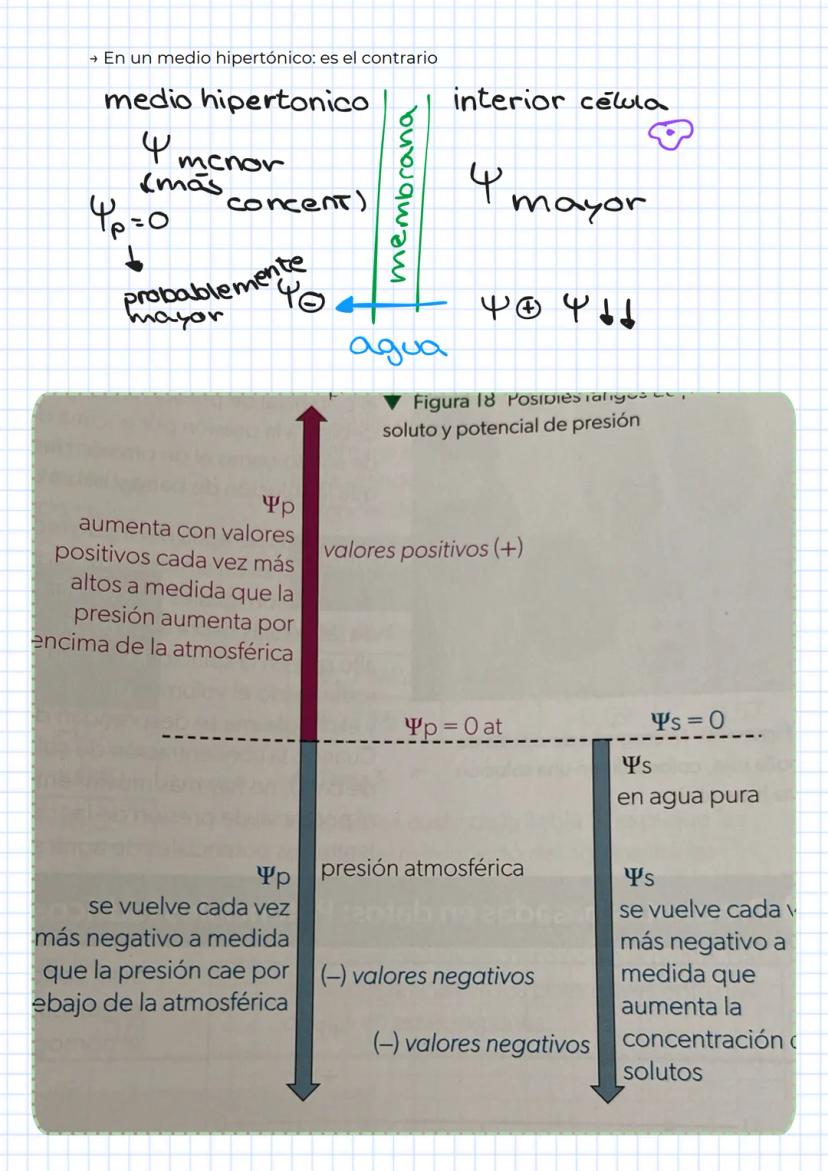 → En un medio hipertónico: es el contrario
medio hipertonico
interior célula
membrana
Ψ menor
(más concent)
Ψp=0
↓
probablemente
mayor
Ψ⊖
Ψ mayor
Ψ⊕ Ψ↓↓
agua
▼ Figura 18 Posibles rangos
soluto y potencial de presión
Ψp
aumenta con valores
positivos cada vez más
altos a medida que la
presión aumenta por
encima de la atmosférica
valores positivos (+)
Ψp = 0 at
Ψs = 0
Ψs
en agua pura
presión atmosférica
Ψp
se vuelve cada vez
más negativo a medida
que la presión cae por
ebajo de la atmosférica
(–) valores negativos
(–) valores negativos
Ψs
se vuelve cada
más negativo a
medida que
aumenta la
concentración
solutos